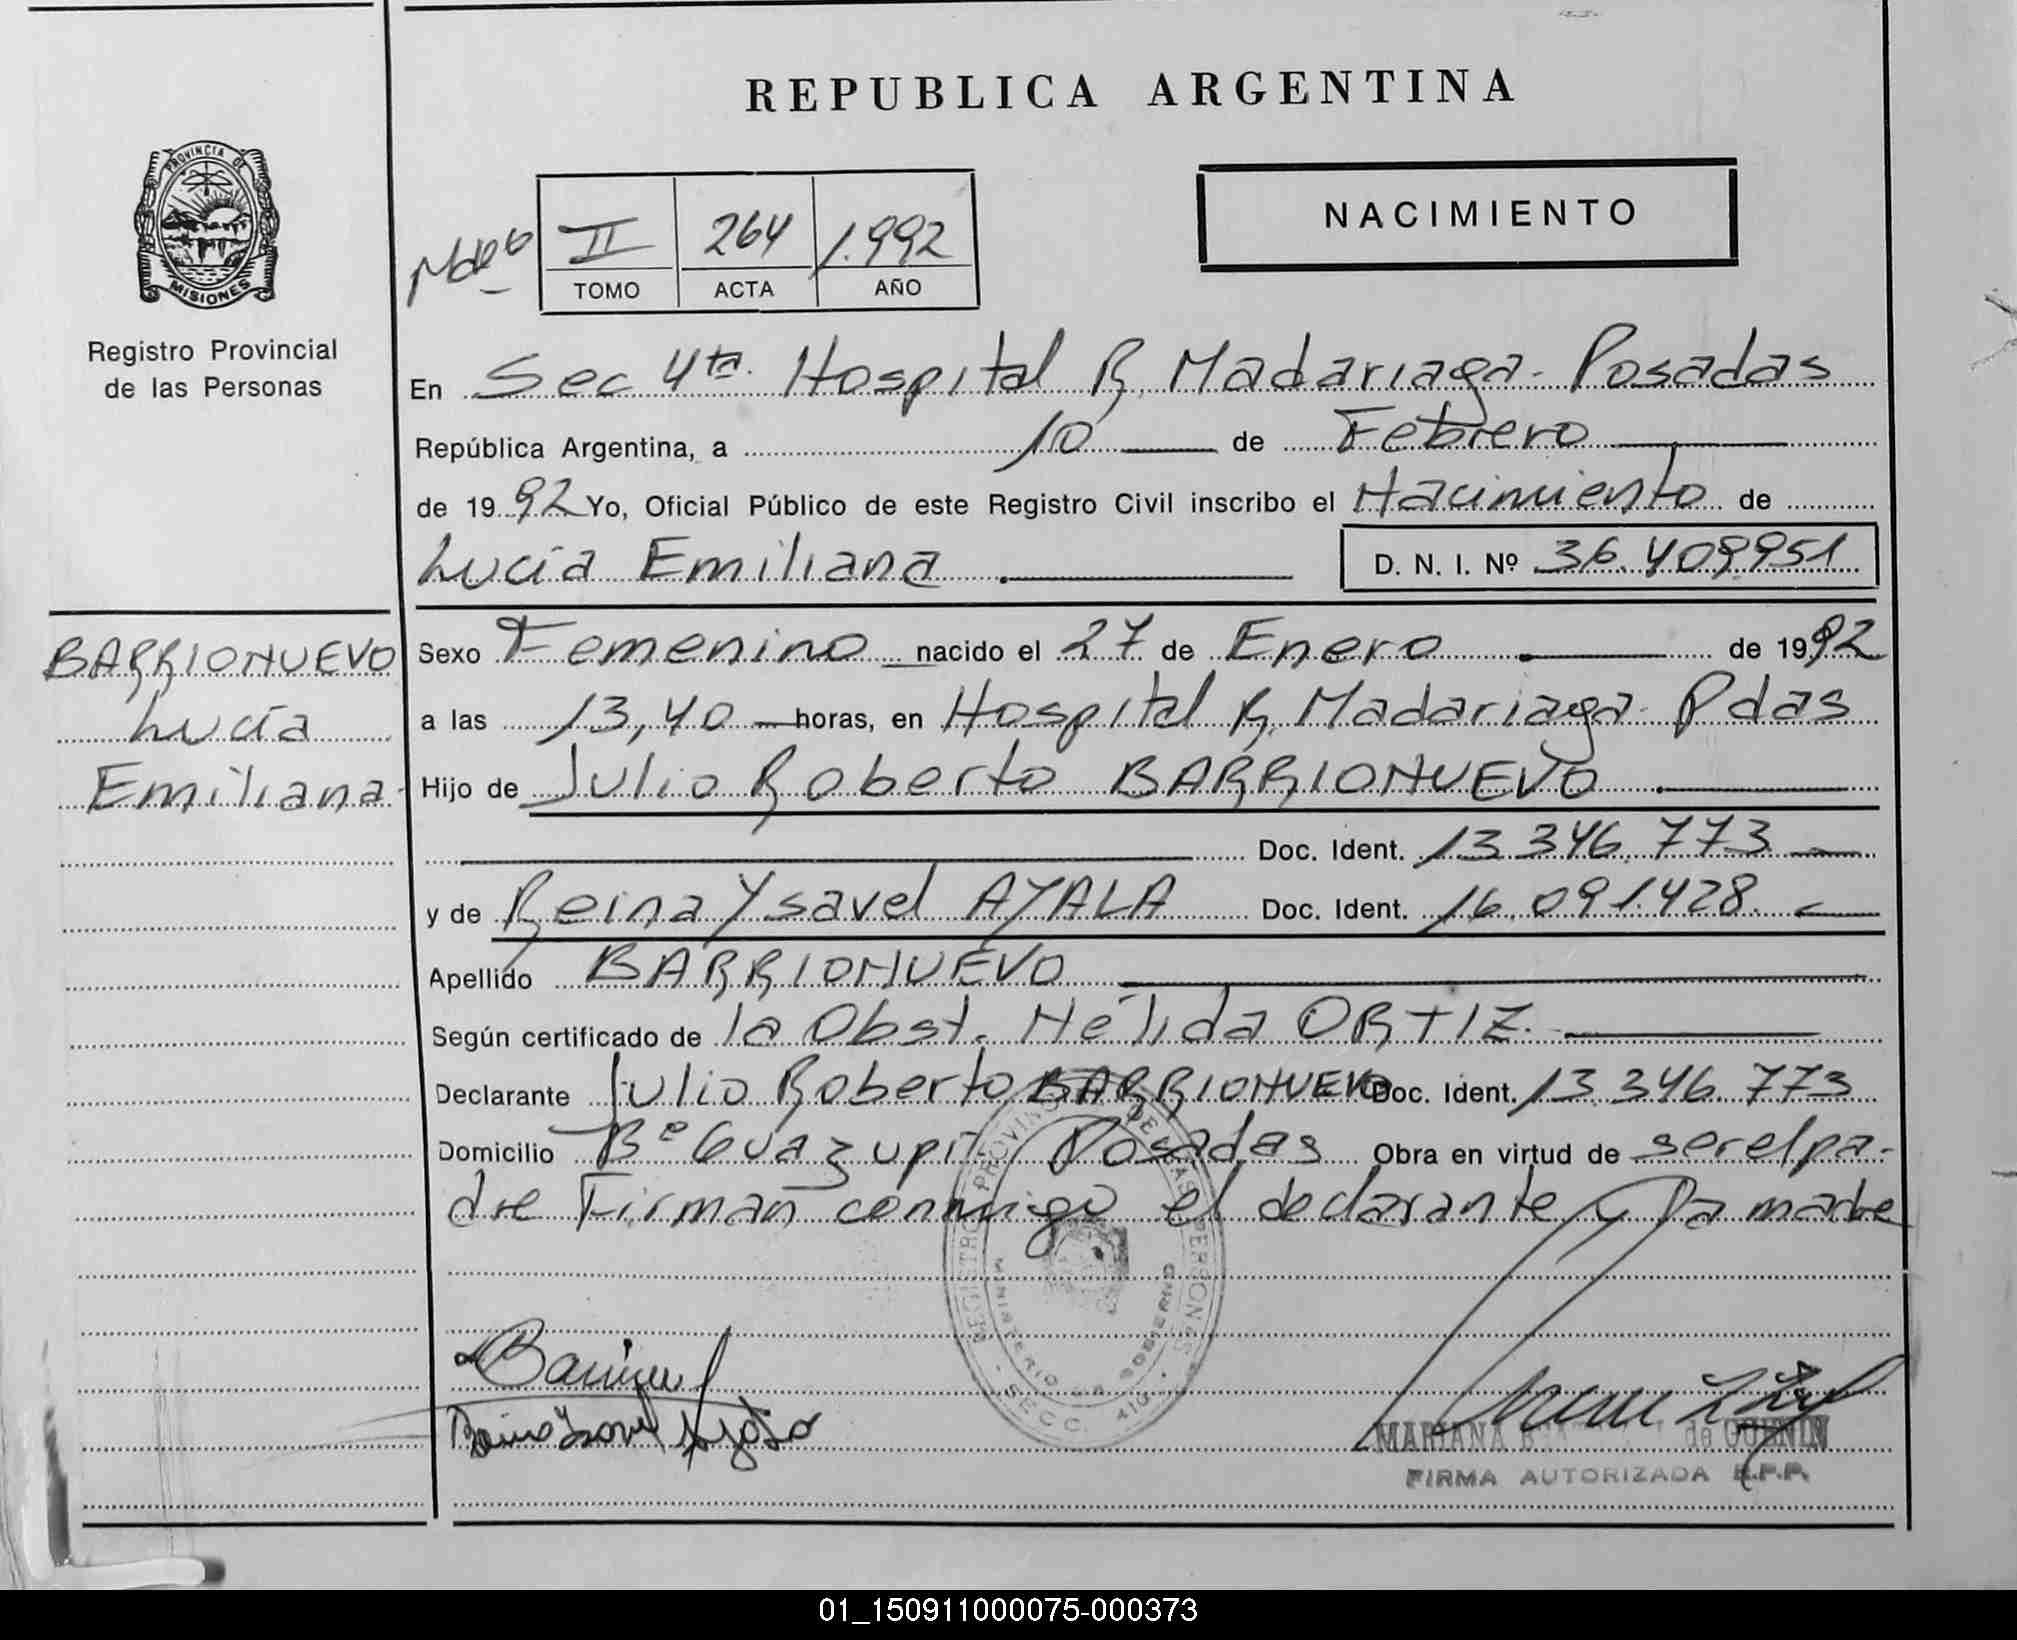 REPUBLICA ARGENTINA
PROVINCIA DE
MISIONES
Registro Provincial
de las Personas
NACIMIENTO
II 264 1.992
TOMO ACTA AÑO
En Sec 4ta. Hospital R. Madariaga - Posadas
República Argentina, a 10 de Febrero
de 1992 Yo, Oficial Público de este Registro Civil inscribo el Nacimiento de
Lucía Emiliana D. N. I. Nº 36.409951
BARRIONUEVO
Lucía
Emiliana
Sexo Femenino nacido el 27 de Enero de 1992
a las 13,40 horas, en Hospital R. Madariaga - Pdas
Hijo de Julio Roberto BARRIONUEVO
Doc. Ident. 13.346.773
y de Reina Ysavel AYALA Doc. Ident. 16.091.428
Apellido BARRIONUEVO
Según certificado de la Obst. Nélida ORTIZ
Declarante Julio Roberto BARRIONUEVO Doc. Ident. 13.346.773
Domicilio Bº Guazupi Posadas Obra en virtud de ser el pa-
dre Firman conmigo el declarante y la madre
REGISTRO PROVINCIAL DE LAS PERSONAS
MINISTERIO DE GOBIERNO
SECC. 4ta.
MARIANA de
FIRMA AUTORIZADA R.P.P.
01_150911000075-000373